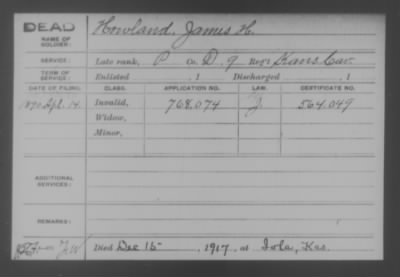 DEAD
NAME OF SOLDIER: Howland, James H.
SERVICE: Late rank, P Co. D. 9 Reg't Kans Cav.
TERM OF SERVICE: Enlisted , 1 Discharged , 1
DATE OF FILING. CLASS. APPLICATION NO. LAW. CERTIFICATE NO.
1890 Apl. 14. Invalid, 768,074 J. 564,049
Widow,
Minor,
ADDITIONAL SERVICES:
REMARKS:
Died Dec 15 , 1917, at Iola, Kas.